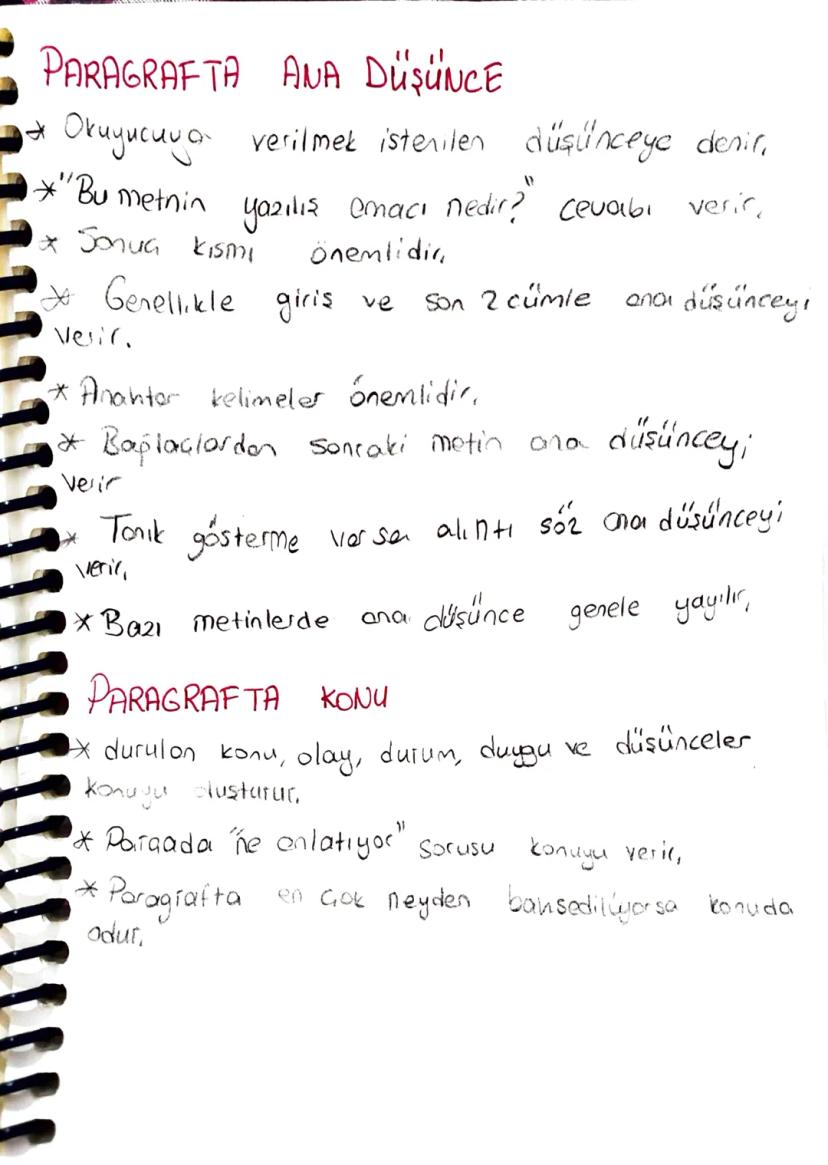 PARAGRAFTA ANA DÜŞÜNCE
* Okuyucuya verilmek istenilen düşünceye denir.
* "Bu metnin yazılış amacı nedir?" cevabı verir.
* Sonuç kısmı önemlidir.
* Genellikle giriş ve son 2 cümle ana düşünceyi
verir.
* Anahtar kelimeler önemlidir.
* Bağlaçlardan sonraki metin ana düşünceyi
verir
* Tanık gösterme varsa alıntı söz ana düşünceyi
verir.
* Bazı metinlerde ana düşünce genele yayılır.
PARAGRAFTA KONU
* durulan konu, olay, durum, duygu ve düşünceler
konuyu oluşturur.
* Parçada "ne anlatıyor" sorusu konuyu verir.
* Paragrafta en çok neyden bahsediliyorsa konuda
odur.